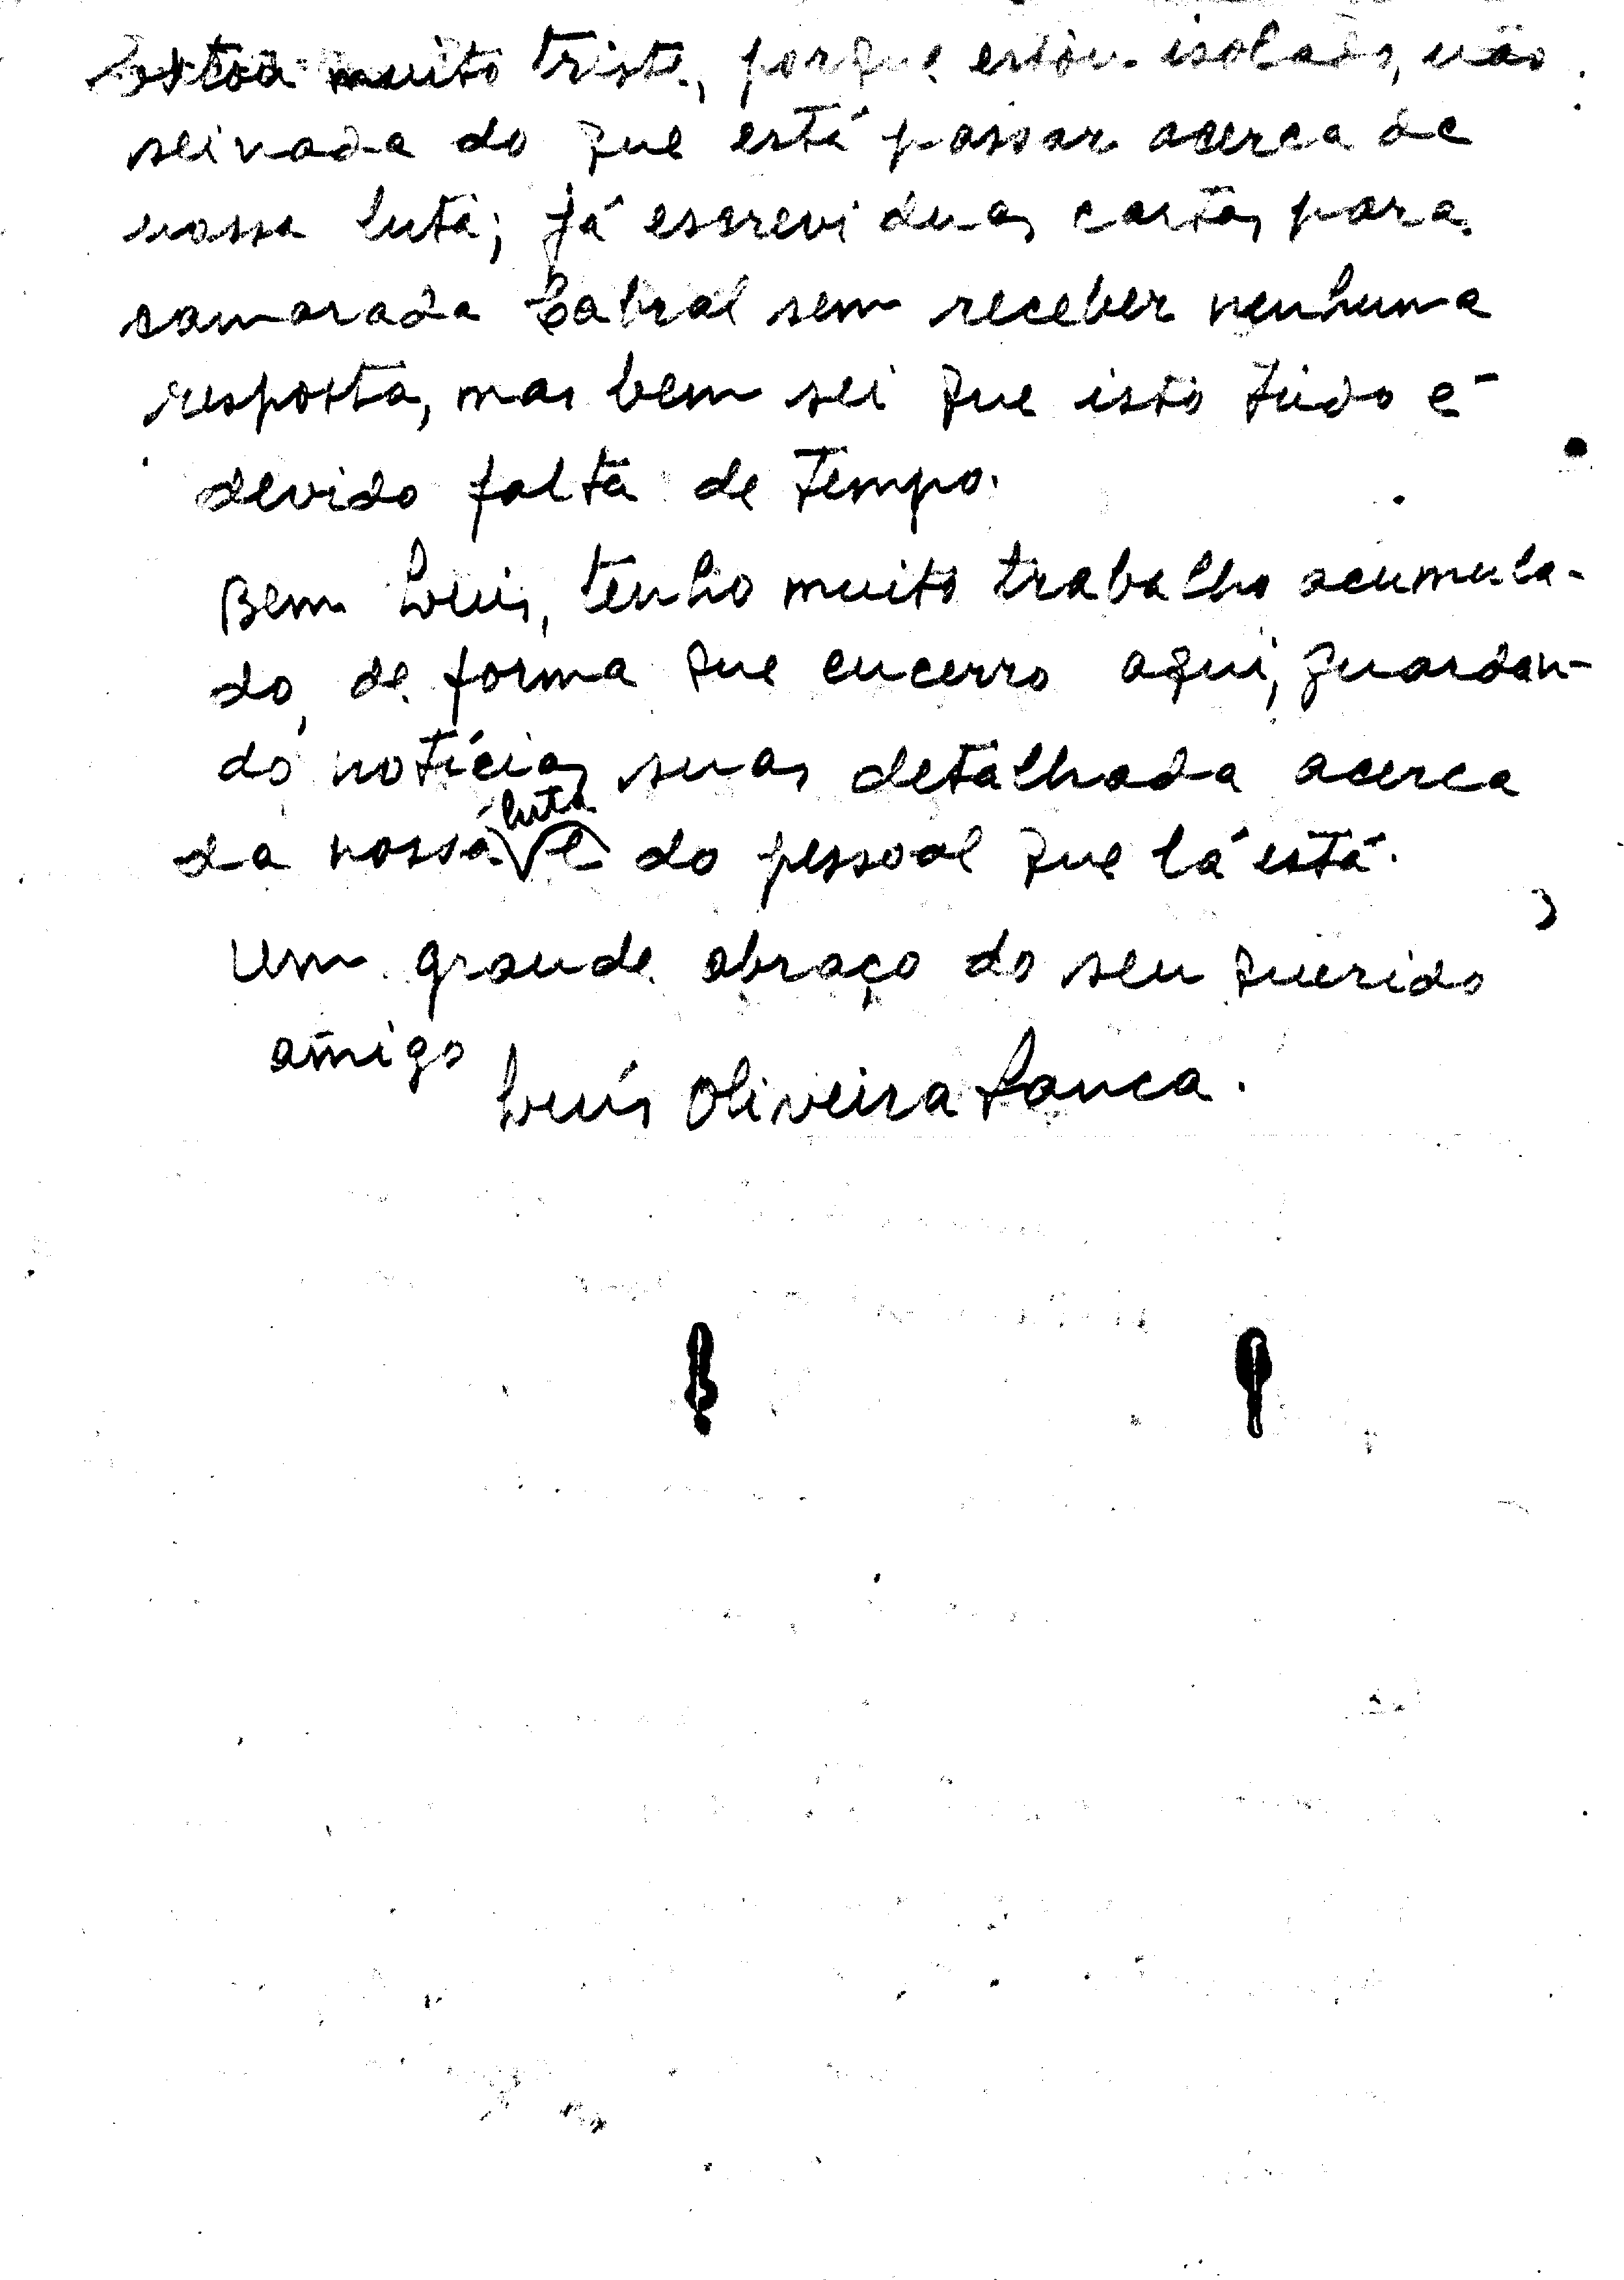 Estou muito triste, porque estou isolado, não
sei nada do que está passar acerca de
nossa luta; já escrevi duas cartas para
camarada Cabral sem receber nenhuma
resposta, mas bem sei que isto tudo é
devido falta de tempo.
Bem Luis, tenho muito trabalho acumula-
do, de forma que encerro aqui, guardan-
do notícias suas detalhada acerca
da nossa luta e do pessoal que lá está.
Um grande abraço do seu querido
amigo
Luís Oliveira Sanca.